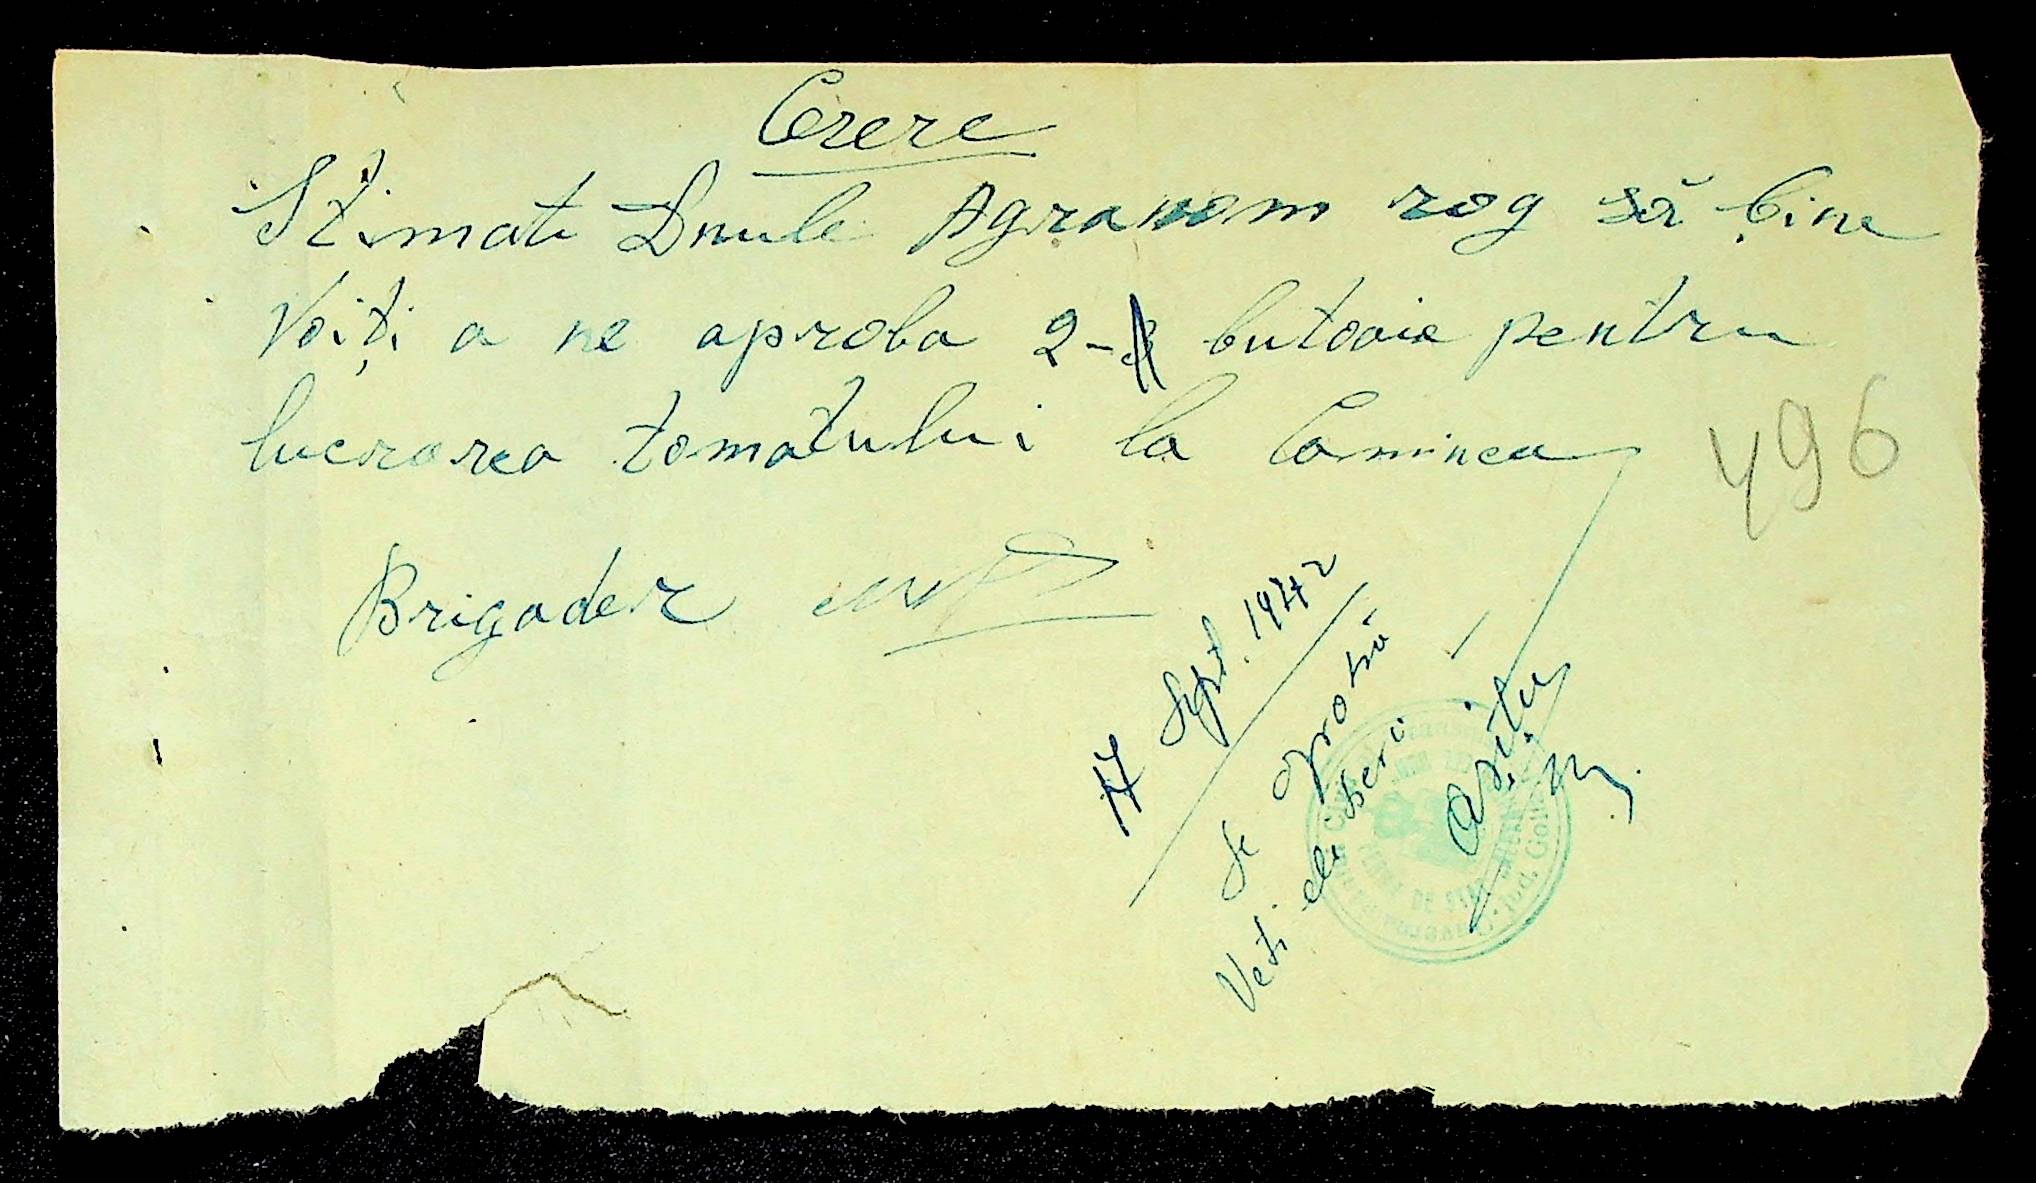 Cerere
Stimate Dnule Agranom rog să bine
Voiți a ne aproba 2- butoaie pentru
lucrarea tomatului la Caminca
Brigader
496
17 Sept. 1942
Se aprobă
Veti elibera
DE STAT
Jud. Golta